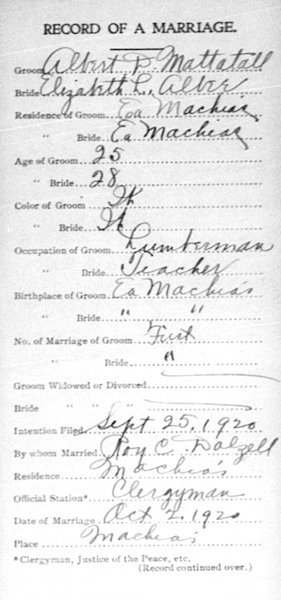 RECORD OF A MARRIAGE.
Groom Albert P. Mattatall
Bride Elizabeth L. Albee
Residence of Groom Ea Machias
" Bride Ea Machias
Age of Groom 25
" Bride 28
Color of Groom W
" Bride W
Occupation of Groom Lumberman
" Bride Teacher
Birthplace of Groom Ea Machias
" Bride " "
No. of Marriage of Groom First
" Bride "
Groom Widowed or Divorced
Bride " " "
Intention Filed Sept 25, 1920
By whom Married Roy C. Dalzell
Residence Machias
Official Station* Clergyman
Date of Marriage Oct 2, 1920
Place Machias
*Clergyman, Justice of the Peace, etc.
(Record continued over.)